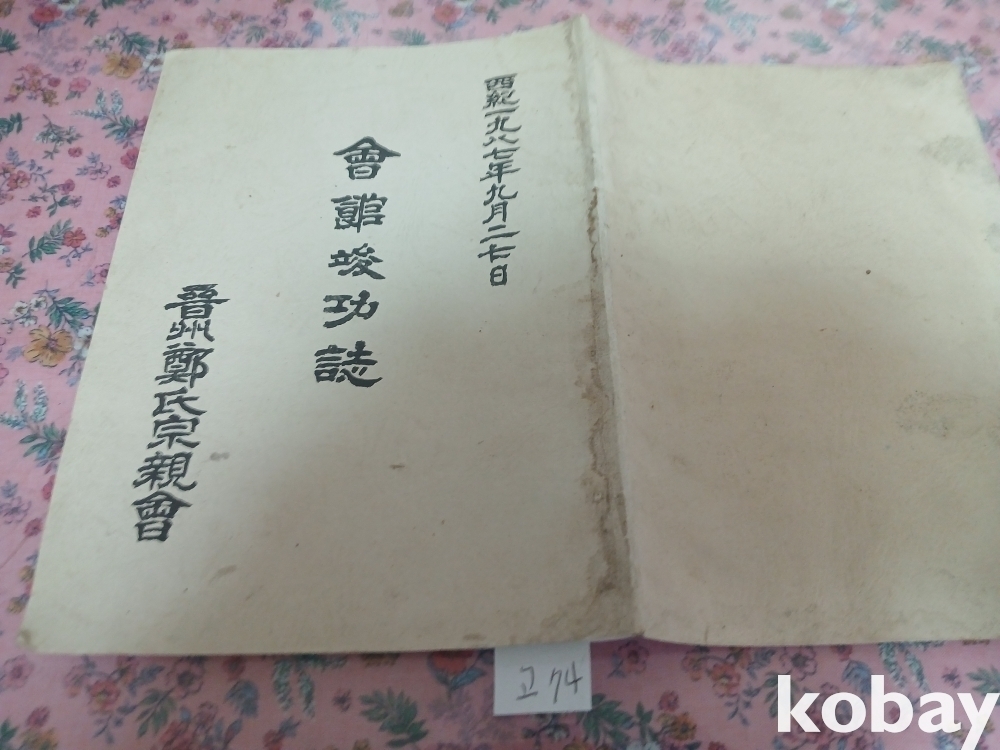 西紀一九八七年九月二七日
會館竣功誌
晋州鄭氏宗親會
고74
kobay